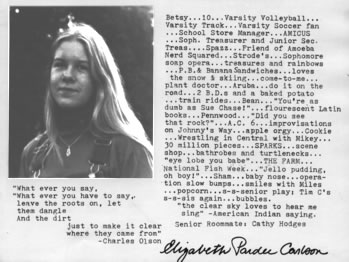 Betsy...10...Varsity Volleyball...
Varsity Track...Varsity Soccer fan
...School Store Manager...AMICUS
...Soph. Treasurer and Junior Sec.
Treas...Spazz...Friend of Amoeba
Nerd Squared...Strode's...Sophomore
soap opera...treasures and rainbows
...P.B.& Banana Sandwiches...loves
the snow & skiing...come-to-me...
plant doctor...Aruba...do it on the
road...2 B.D.s and a baked potato
...train rides...Bean..."You're as
dumb as Sue Chase!"...flourescent Latin
books...Pennwood..."Did you see
that rock?"...A.C. 6...improvisations
on Johnny's Way..apple orgy...Cookie
...Wrestling in Central with Mikey...
30 million pieces...SPARKS...scene
shop...bathrobes and turtlenecks...
"eye lobs you babe"...THE FARM...
National Fish Week..."Jello pudding,
oh boy!"...Sham...baby nose...opera-
tion slow bumps...smiles with Miles
...porpoises...s-s-senior play; Tim C's
s-s-sis again...bubbles.
"the clear sky loves to hear me
sing" -American Indian saying.
Senior Roommate: Cathy Hodges
"What ever you say,
"What ever you have to say,
leave the roots on, let
them dangle
And the dirt
just to make it clear
where they came from"
-Charles Olson
Elizabeth Pardee Carlson